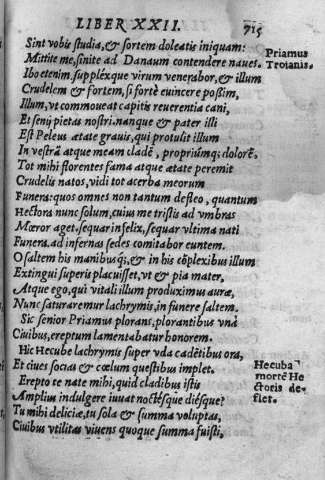 LIBER XXII. 715
Sint vobis studia, & sortem doleatis iniquam:
Mittite me, sinite ad Danaum contendere naues.
Priamus
Troianis.
Ibo etenim, supplexque virum venerabor, & illum
Crudelem & fortem, si fortè euincere possim,
Illum, vt commoueat capitis reuerentia cani,
Et senij pietas nostri. nanque & pater illi
Est Peleus ætate grauis, qui protulit illum
In vestrā atque meam cladē, propriúmq; dolorē.
Tot mihi florentes fama atque ætate peremit
Crudelis natos, vidi tot acerba meorum
Funera: quos omnes non tantum defleo, quantum
Hectora nunc solum, cuius me tristis ad vmbras
Mæror aget, sequar infelix, sequar vltima nati
Funera, ad infernas sedes comitabor euntem.
O saltem his manibusq; & in his cōplexibus illum
Extingui superis placuisset, vt & pia mater,
Atque ego, qui vitali illum produximus auræ,
Nunc saturaremur lachrymis, in funere saltem.
Sic senior Priamus plorans, plorantibus vnà
Ciuibus, ereptum lamentabatur honorem.
Hîc Hecube lachrymis super vda cadētibus ora,
Et ciues socias & cœlum questibus implet.
Hecuba
mortē He
ctoris de-
flet.
Erepto te nate mihi, quid cladibus istis
Amplius indulgere iuuat noctésque diésque?
Tu mihi deliciæ, tu sola & summa voluptas,
Ciuibus vtilitas viuens quoque summa fuisti,